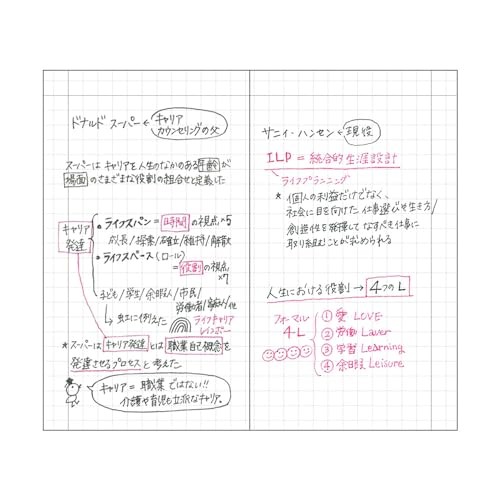 ドナルド スーパー ← キャリア
カウンセリングの父
スーパーは キャリアを人生のなかのある年齢が
場面のさまざまな役割の組合せと定義した
キャリア
発達
• ライフスパン = 時間の視点 ×5
成長/探索/確立/維持/解放
• ライフスペース (ロール)
= 役割の視点
×7
子ども/学生/余暇人/市民/
労働者/
→ 虹に例えた
ライフキャリア
レインボー
* スーパーは キャリア発達 とは 職業自己概念を
発達させるプロセスと考えた
キャリア = 職業 ではない!!
介護や育児も立派なキャリア。
サニィ・ハンセン ← 現役
ILP = 統合的生涯設計
ライフプランニング
* 個人の利益だけでなく、
社会に目を向けた仕事選びや生き方/
創造性を発揮して なすべき仕事に
取り組むことが求められる
人生における役割 → 4つのL
フォーマル
4L
① 愛 LOVE
② 労働 Laver
③ 学習 Learning
④ 余暇 Leisure